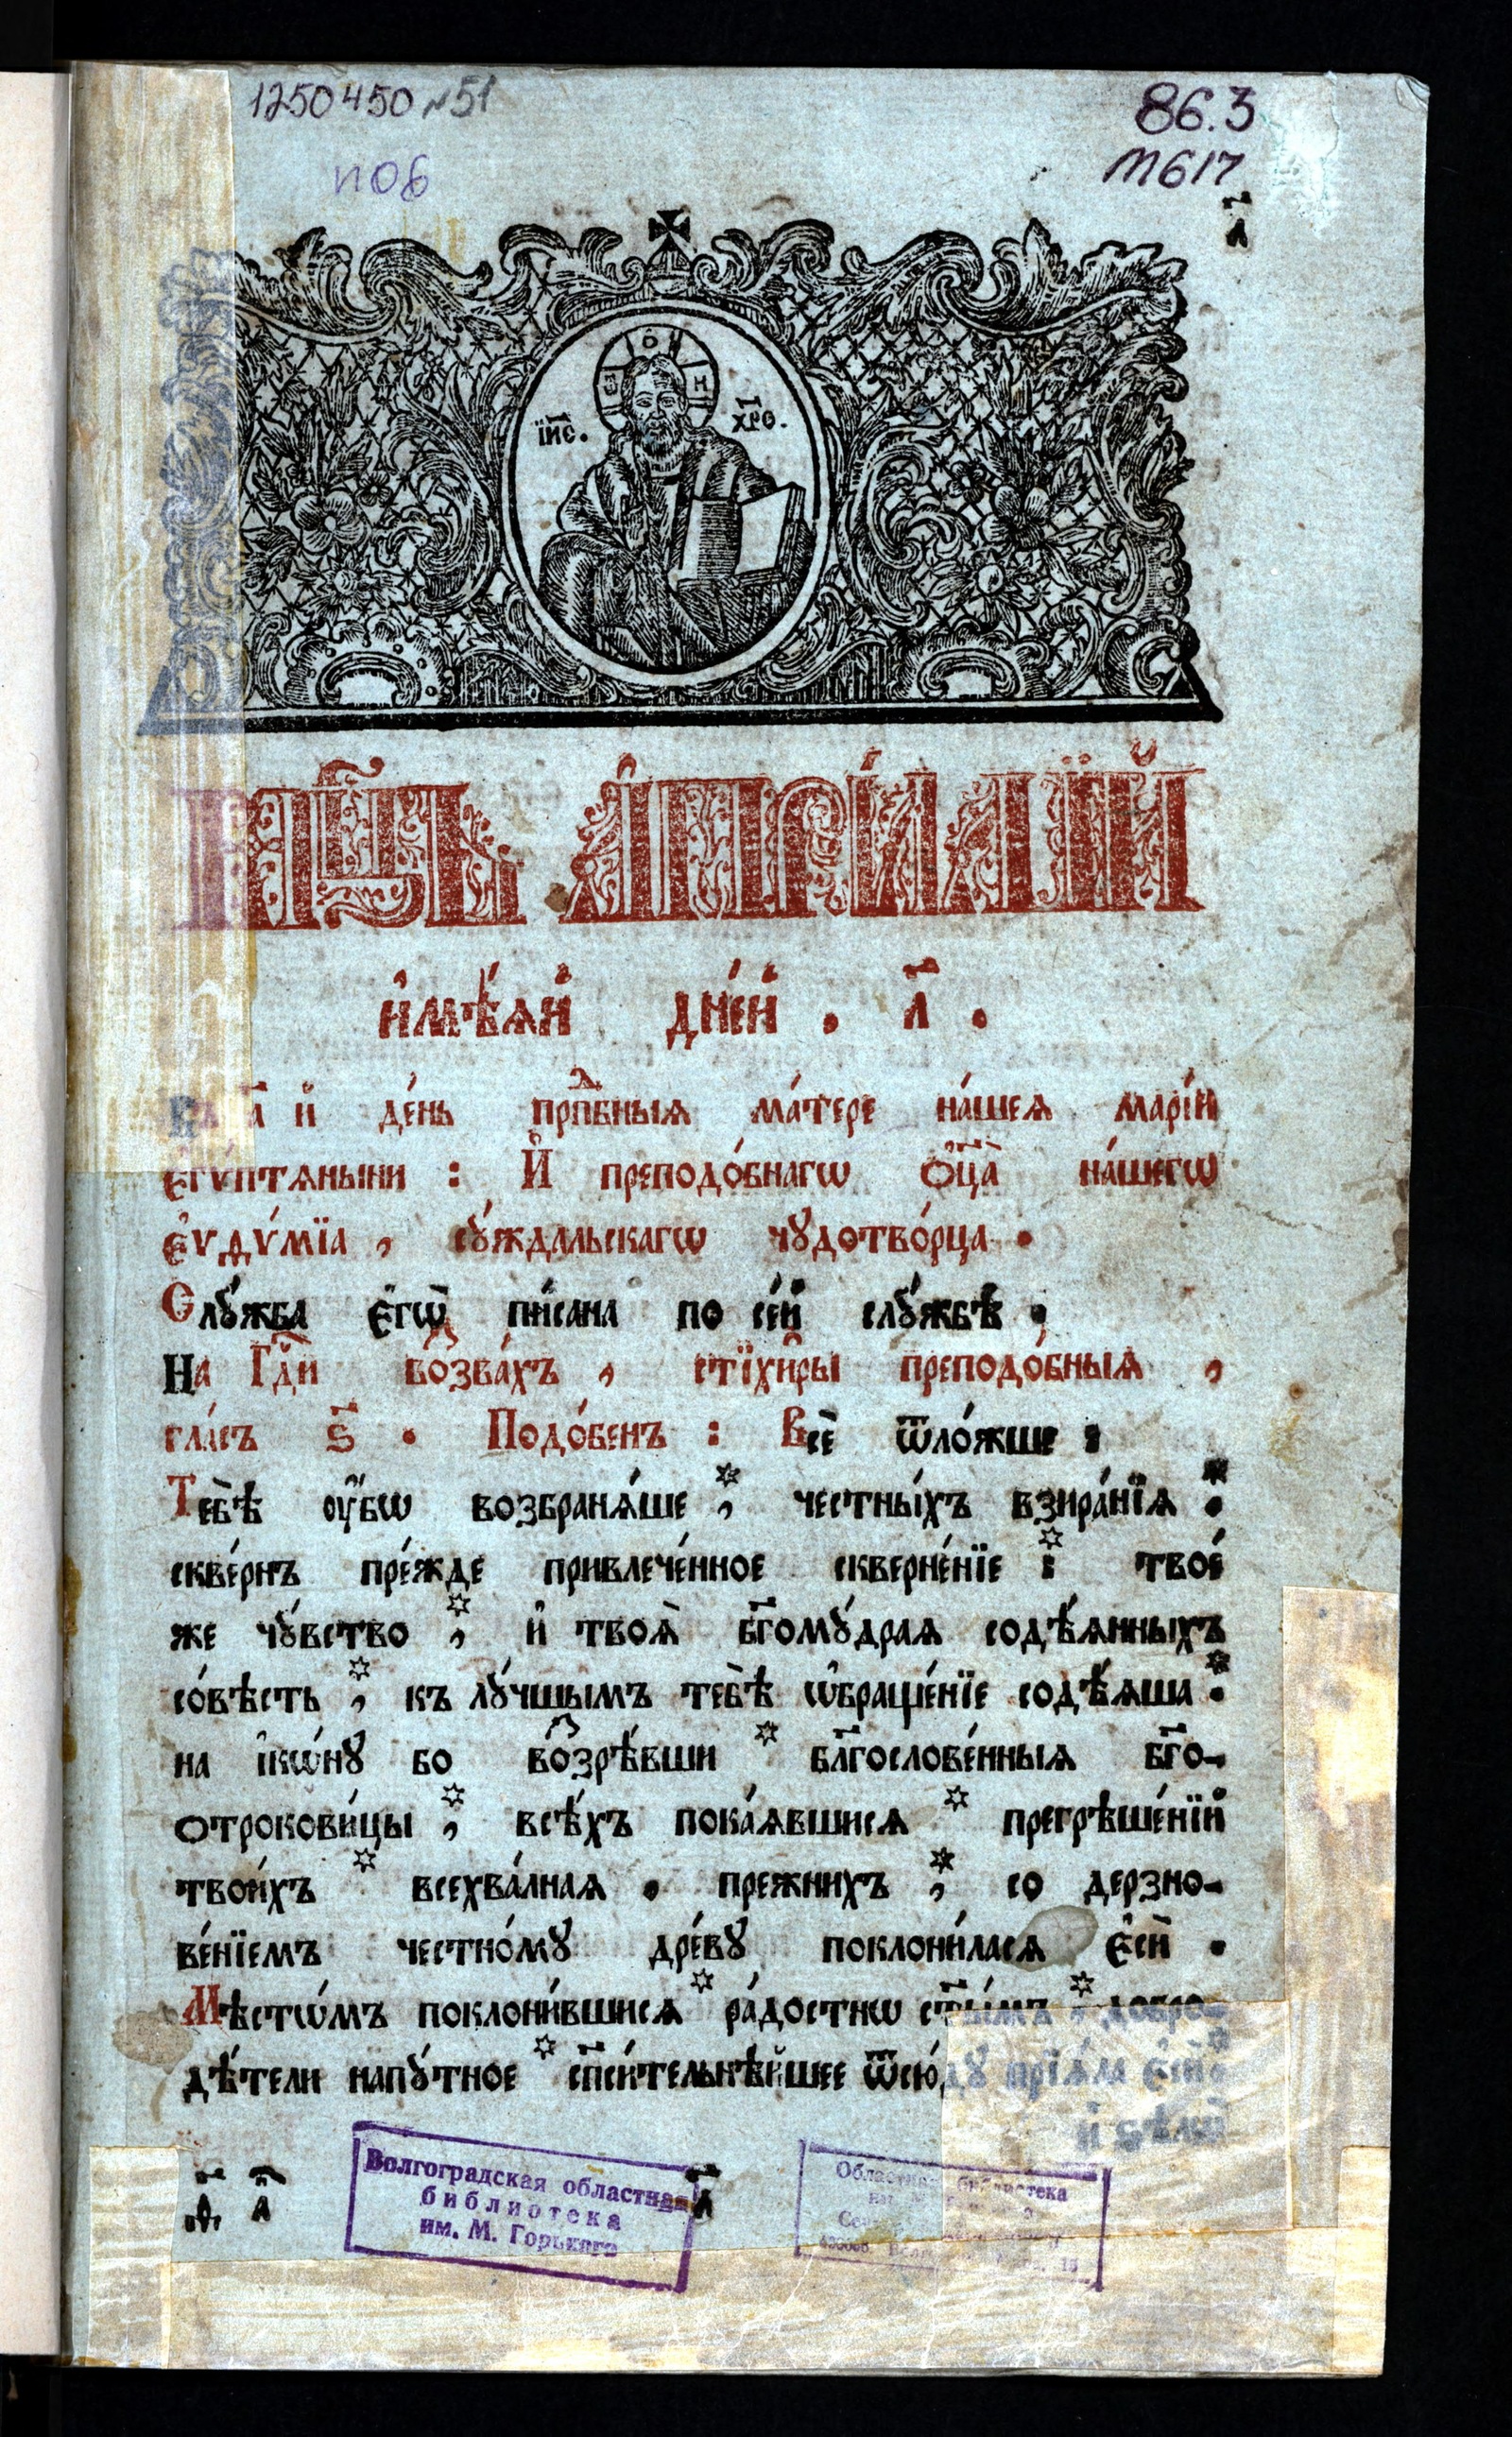 1250450 №51
86.3
п06
М617
а҃
ѻ
н
і҆и҃с.
хр҃о.
мцⷭ҇ъ а҆прі́лїй
и҆мѣ́ѧй дне́й . л҃ .
въ а҃ й де́нь прпⷣбныѧ ма́тере на́шеѧ марі́и
є҆гѵ́птѧныни : И҆ преподо́бнагѡ ѻ҆ц҃а̀ на́шегѡ
є҆ѵѳѵ́мїа , сꙋ́ждальскагѡ чꙋдотво́рца .
Слꙋ́жба є҆гѡ̀ пи́сана по се́й слꙋ́жбѣ .
На Гдⷭ҇и воⷥзва́хъ , стїхи̑ры преподо́бныѧ ,
гла́съ ѕ҃ . Подо́бенъ : Всѐ ѿло́жше :
Тебѣ̀ ᲂу҆́бѡ возбранѧ́ше *, честны́хъ взира́нїѧ *.
скве́рнъ пре́жде привлече́нное скверне́нїе *: твоѐ
же чꙋ́вство *, и҆ твоѧ̀ бг҃омꙋ́драѧ содѣ́ѧнныхъ
со́вѣсть *, къ лꙋ́чшымъ тебѣ̀ ѡ҆браще́нїе содѣ́ѧша *.
на і҆кѡ́нꙋ бо воⷥзрѣ́вши * бл҃гослове́нныѧ бг҃о-
отрокови́цы *, всѣ́хъ пока́ѧвшисѧ * прегрѣше́нїй
твои́хъ * всехва́лнаѧ . прежнихъ *, со дерзно-
ве́нїемъ честно́мꙋ дре́вꙋ поклони́ласѧ є҆сѝ .
Мѣстѡ́мъ поклони́вшисѧ * ра́достнѡ ст҃ы́мъ *, добро-
дѣ́тели напꙋ́тное * сп҃си́тельнѣйшее ѿсю́дꙋ прїѧ́ла є҆сѝ *.
и҆ ѕѣлѡ̀
а҃ а҃ а҃
Волгоградская областная
библиотека
им. М. Горького
Областная библиотека